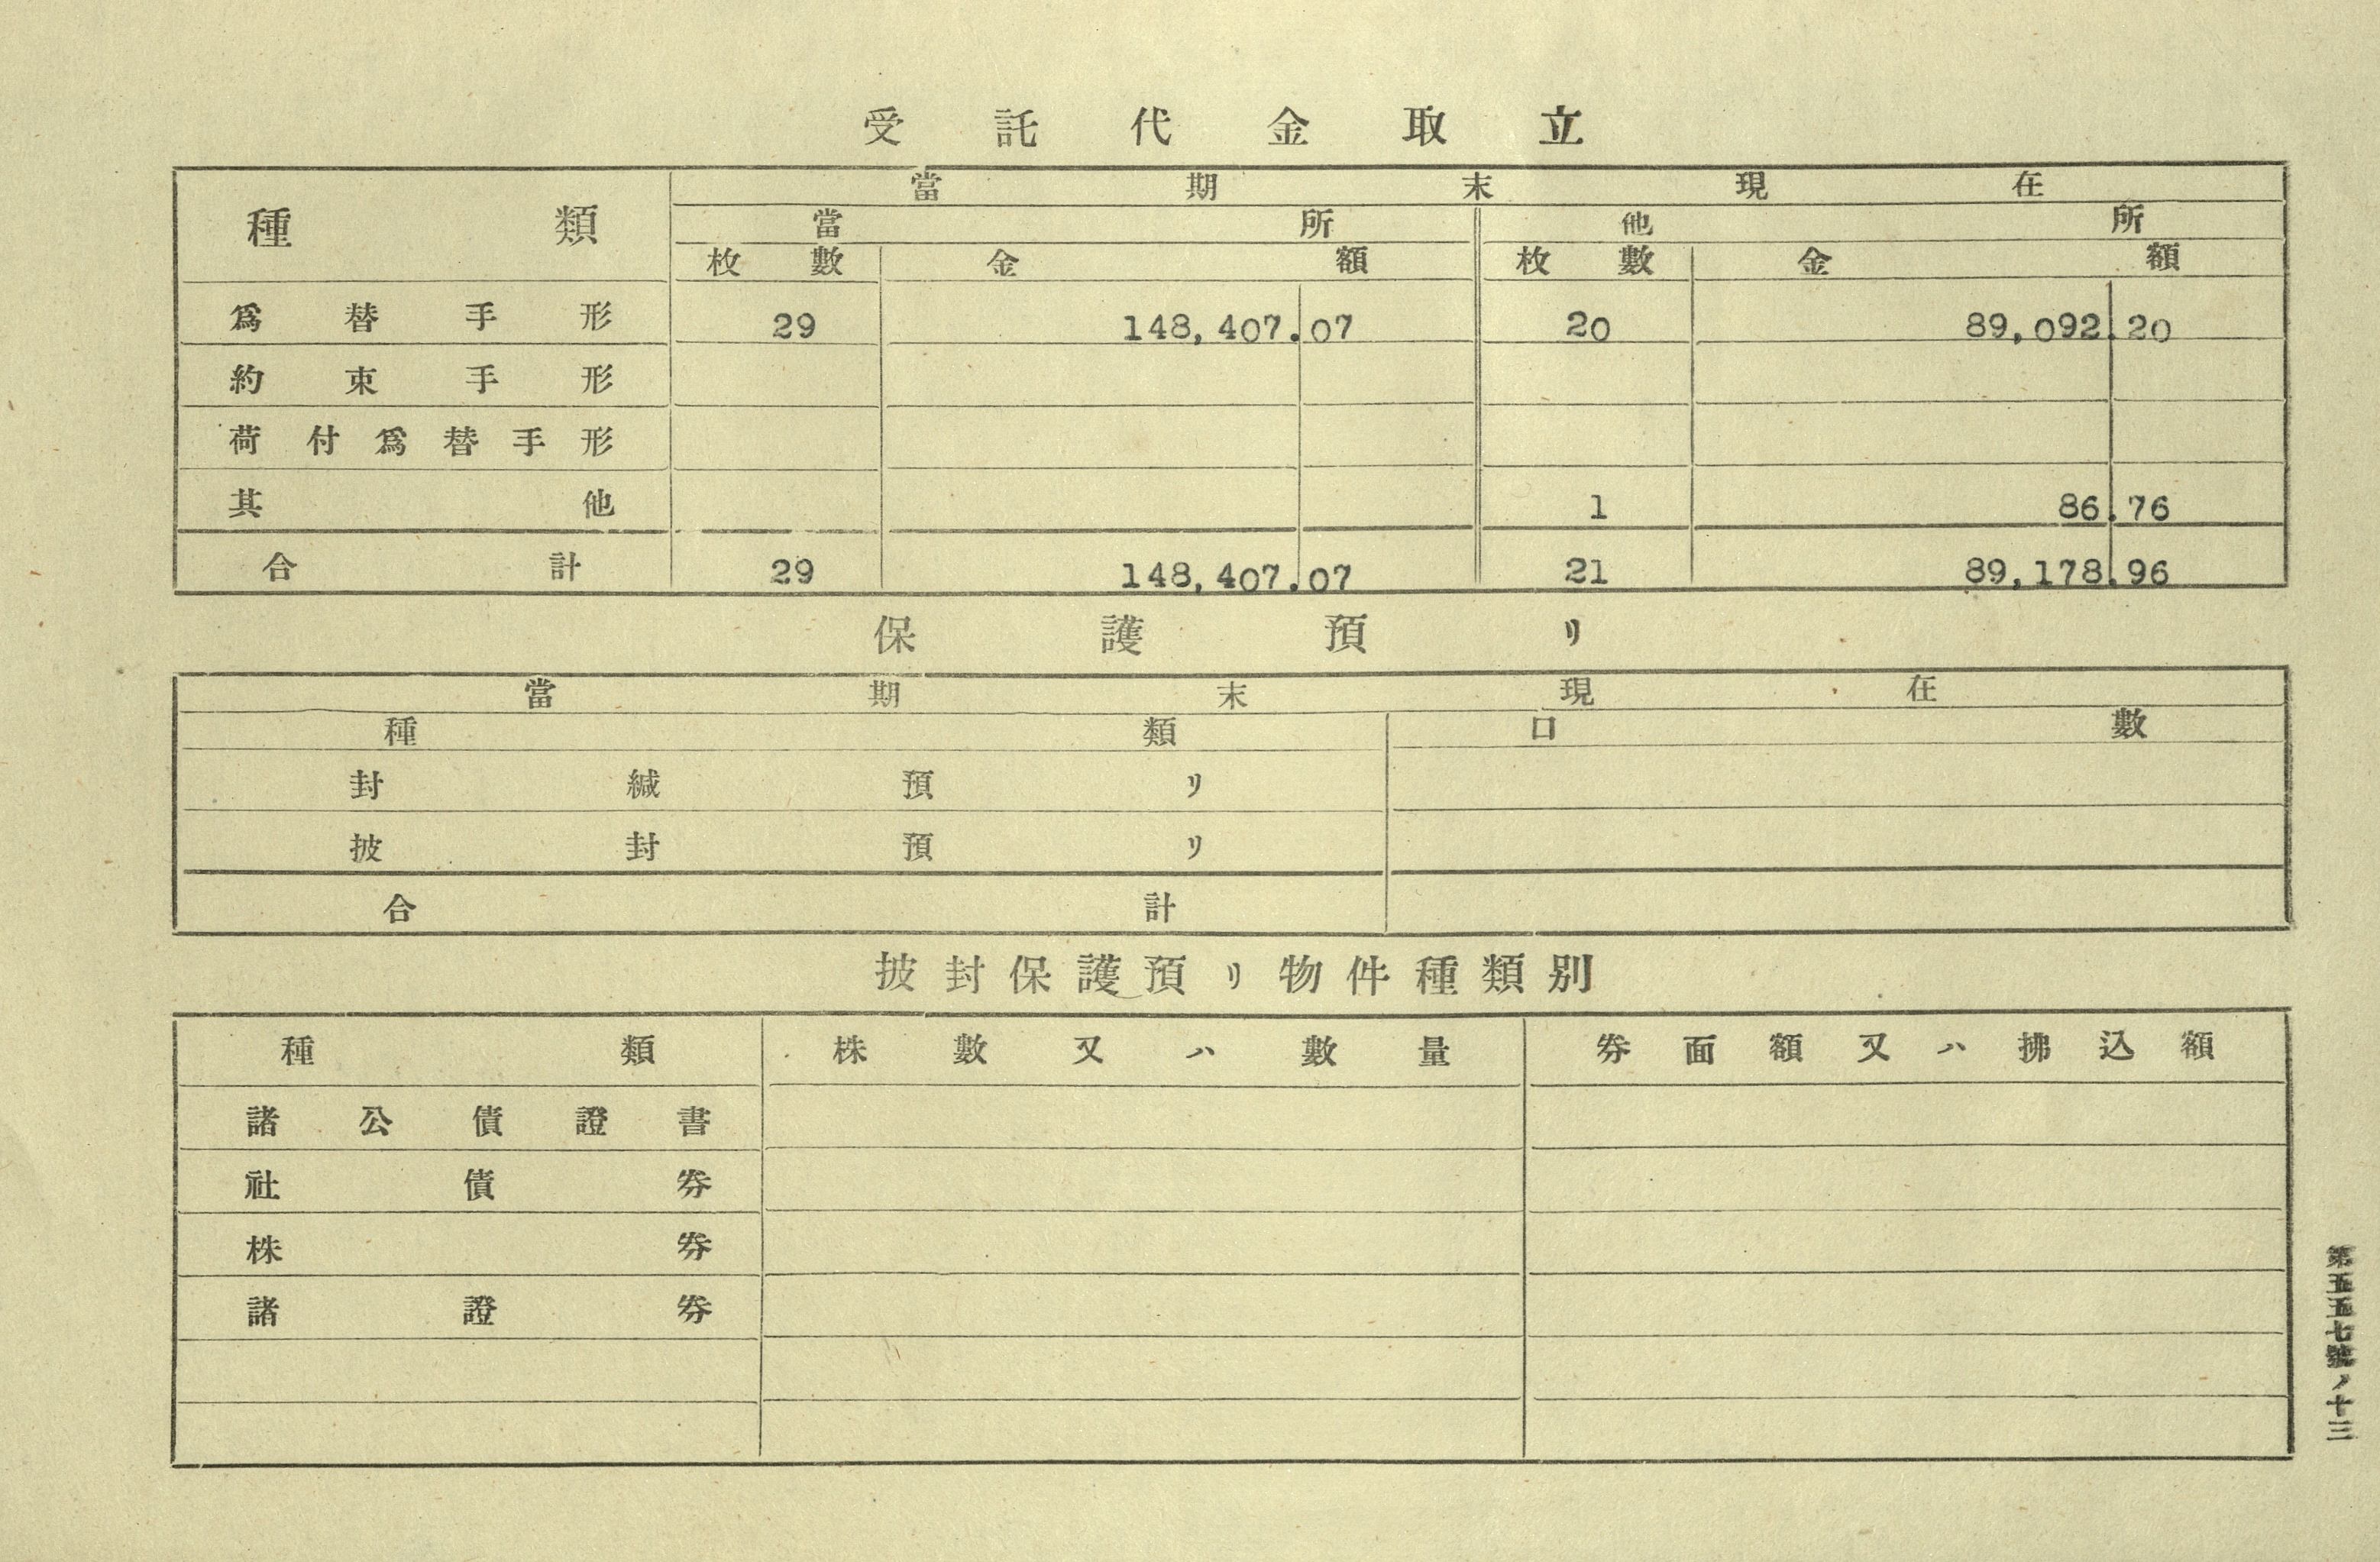 受託代金取立
種類 當期末現在
當所 他所
枚數 金額 枚數 金額
爲替手形 29 148,407.07 20 89,092.20
約束手形
荷付爲替手形
其他 1 86.76
合計 29 148,407.07 21 89,178.96
保護預リ
當期末現在
種類 口數
封緘預リ
披封預リ
合計
披封保護預リ物件種類別
種類 株數又ハ數量 券面額又ハ拂込額
諸公債證書
社債券
株券
諸證券
第五五七號ノ十三